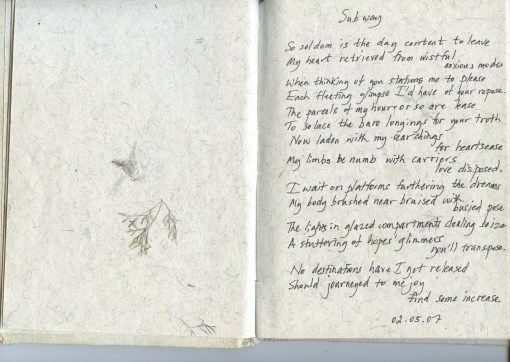 Subway
So seldom is the day content to leave
My heart retrieved from wistful
anxious modes
When thinking of you stations me to please
Each fleeting glimpse I'd have of your repose.
The parcels of my hour or so are lease
To solace the bare longings for your truth
Now laden with my searchings
for heartsease
My limbs be numb with carriers
love disposed.
I wait on platforms furthering the dreams
My body brushed near bruised with
busied pose
The lights in glazed compartments dealing
A stuttering of hopes' glimmers
you'll transpose.
No destinations have I got released
Should journeyed to me joy
find some increase.
02.05.07